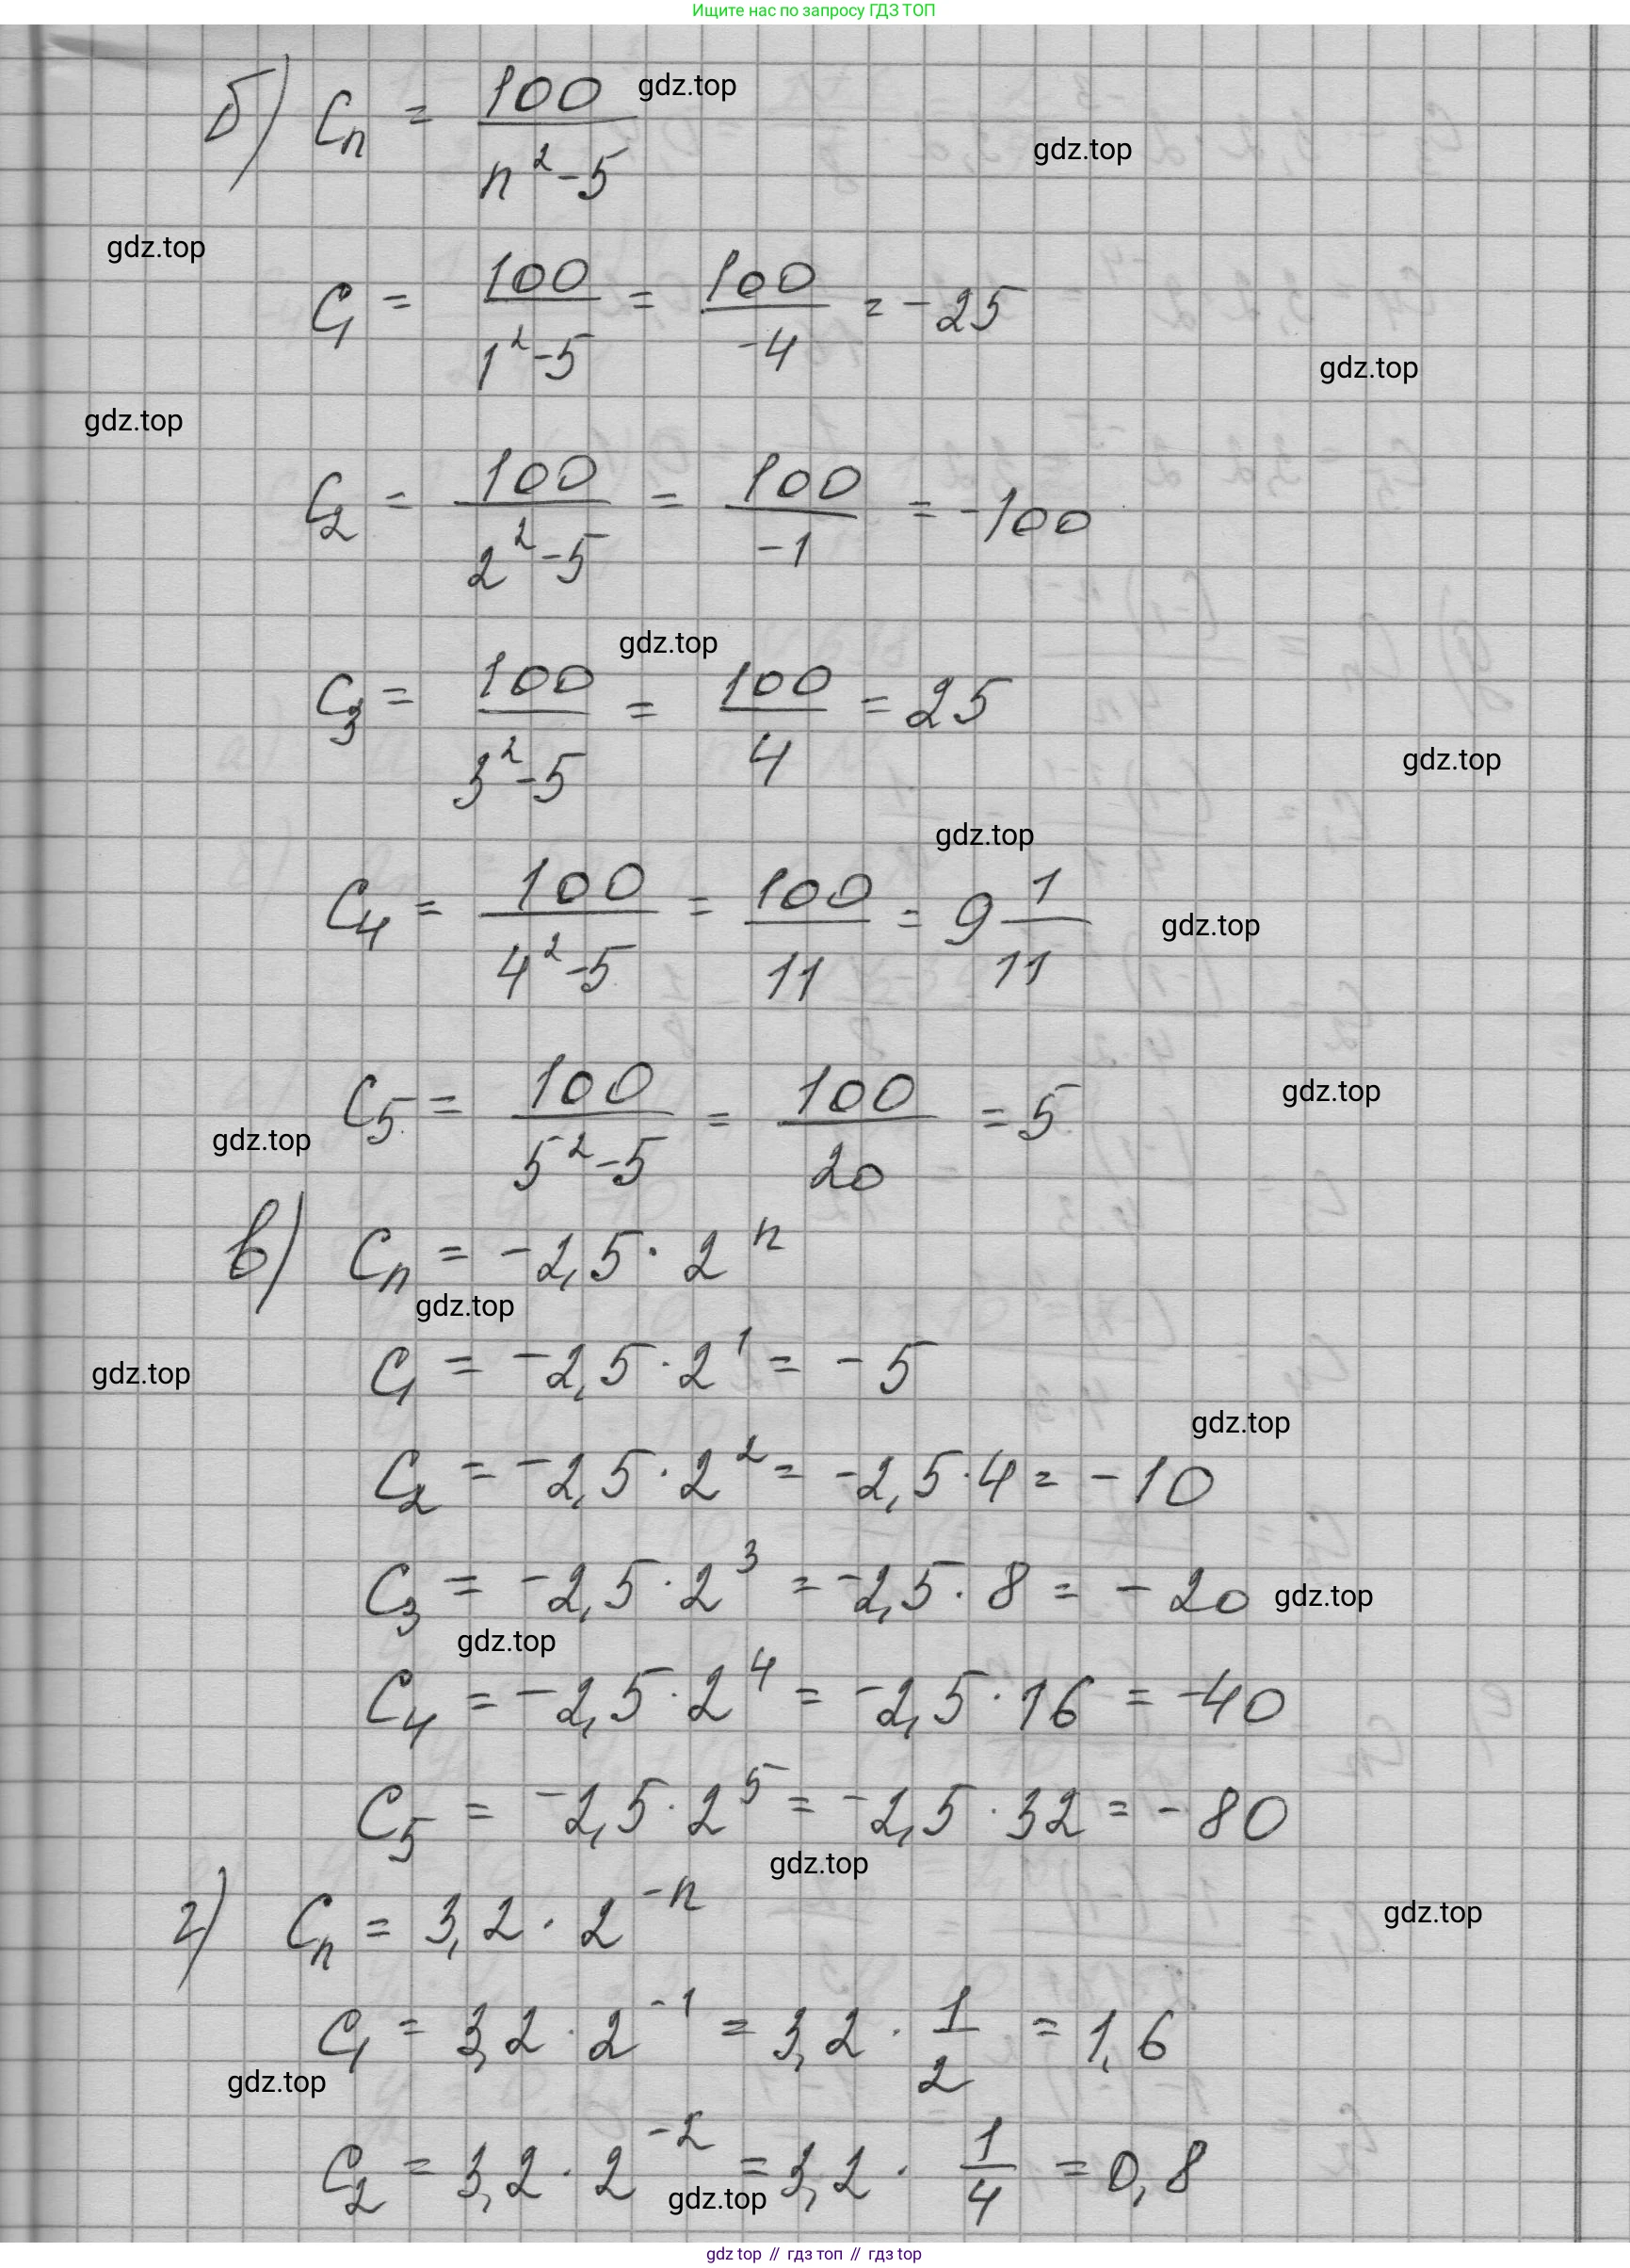 Ищите нас по запросу ГДЗ ТОП
б) Cₙ = 100/(n²-5)
gdz.top
gdz.top
gdz.top
C₁ = 100/(1²-5) = 100/-4 = -25
gdz.top
gdz.top
C₂ = 100/(2²-5) = 100/-1 = -100
gdz.top
C₃ = 100/(3²-5) = 100/4 = 25
gdz.top
gdz.top
C₄ = 100/(4²-5) = 100/11 = 9 1/11
gdz.top
C₅ = 100/(5²-5) = 100/20 = 5
gdz.top
gdz.top
в) Cₙ = -2,5 · 2ⁿ
gdz.top
C₁ = -2,5 · 2¹ = -5
gdz.top
gdz.top
C₂ = -2,5 · 2² = -2,5 · 4 = -10
C₃ = -2,5 · 2³ = -2,5 · 8 = -20
gdz.top
gdz.top
C₄ = -2,5 · 2⁴ = -2,5 · 16 = -40
C₅ = -2,5 · 2⁵ = -2,5 · 32 = -80
gdz.top
г) Cₙ = 3,2 · 2⁻ⁿ
gdz.top
C₁ = 3,2 · 2⁻¹ = 3,2 · 1/2 = 1,6
gdz.top
C₂ = 3,2 · 2⁻² = 3,2 · 1/4 = 0,8
gdz.top
gdz top // гдз топ // гдз top